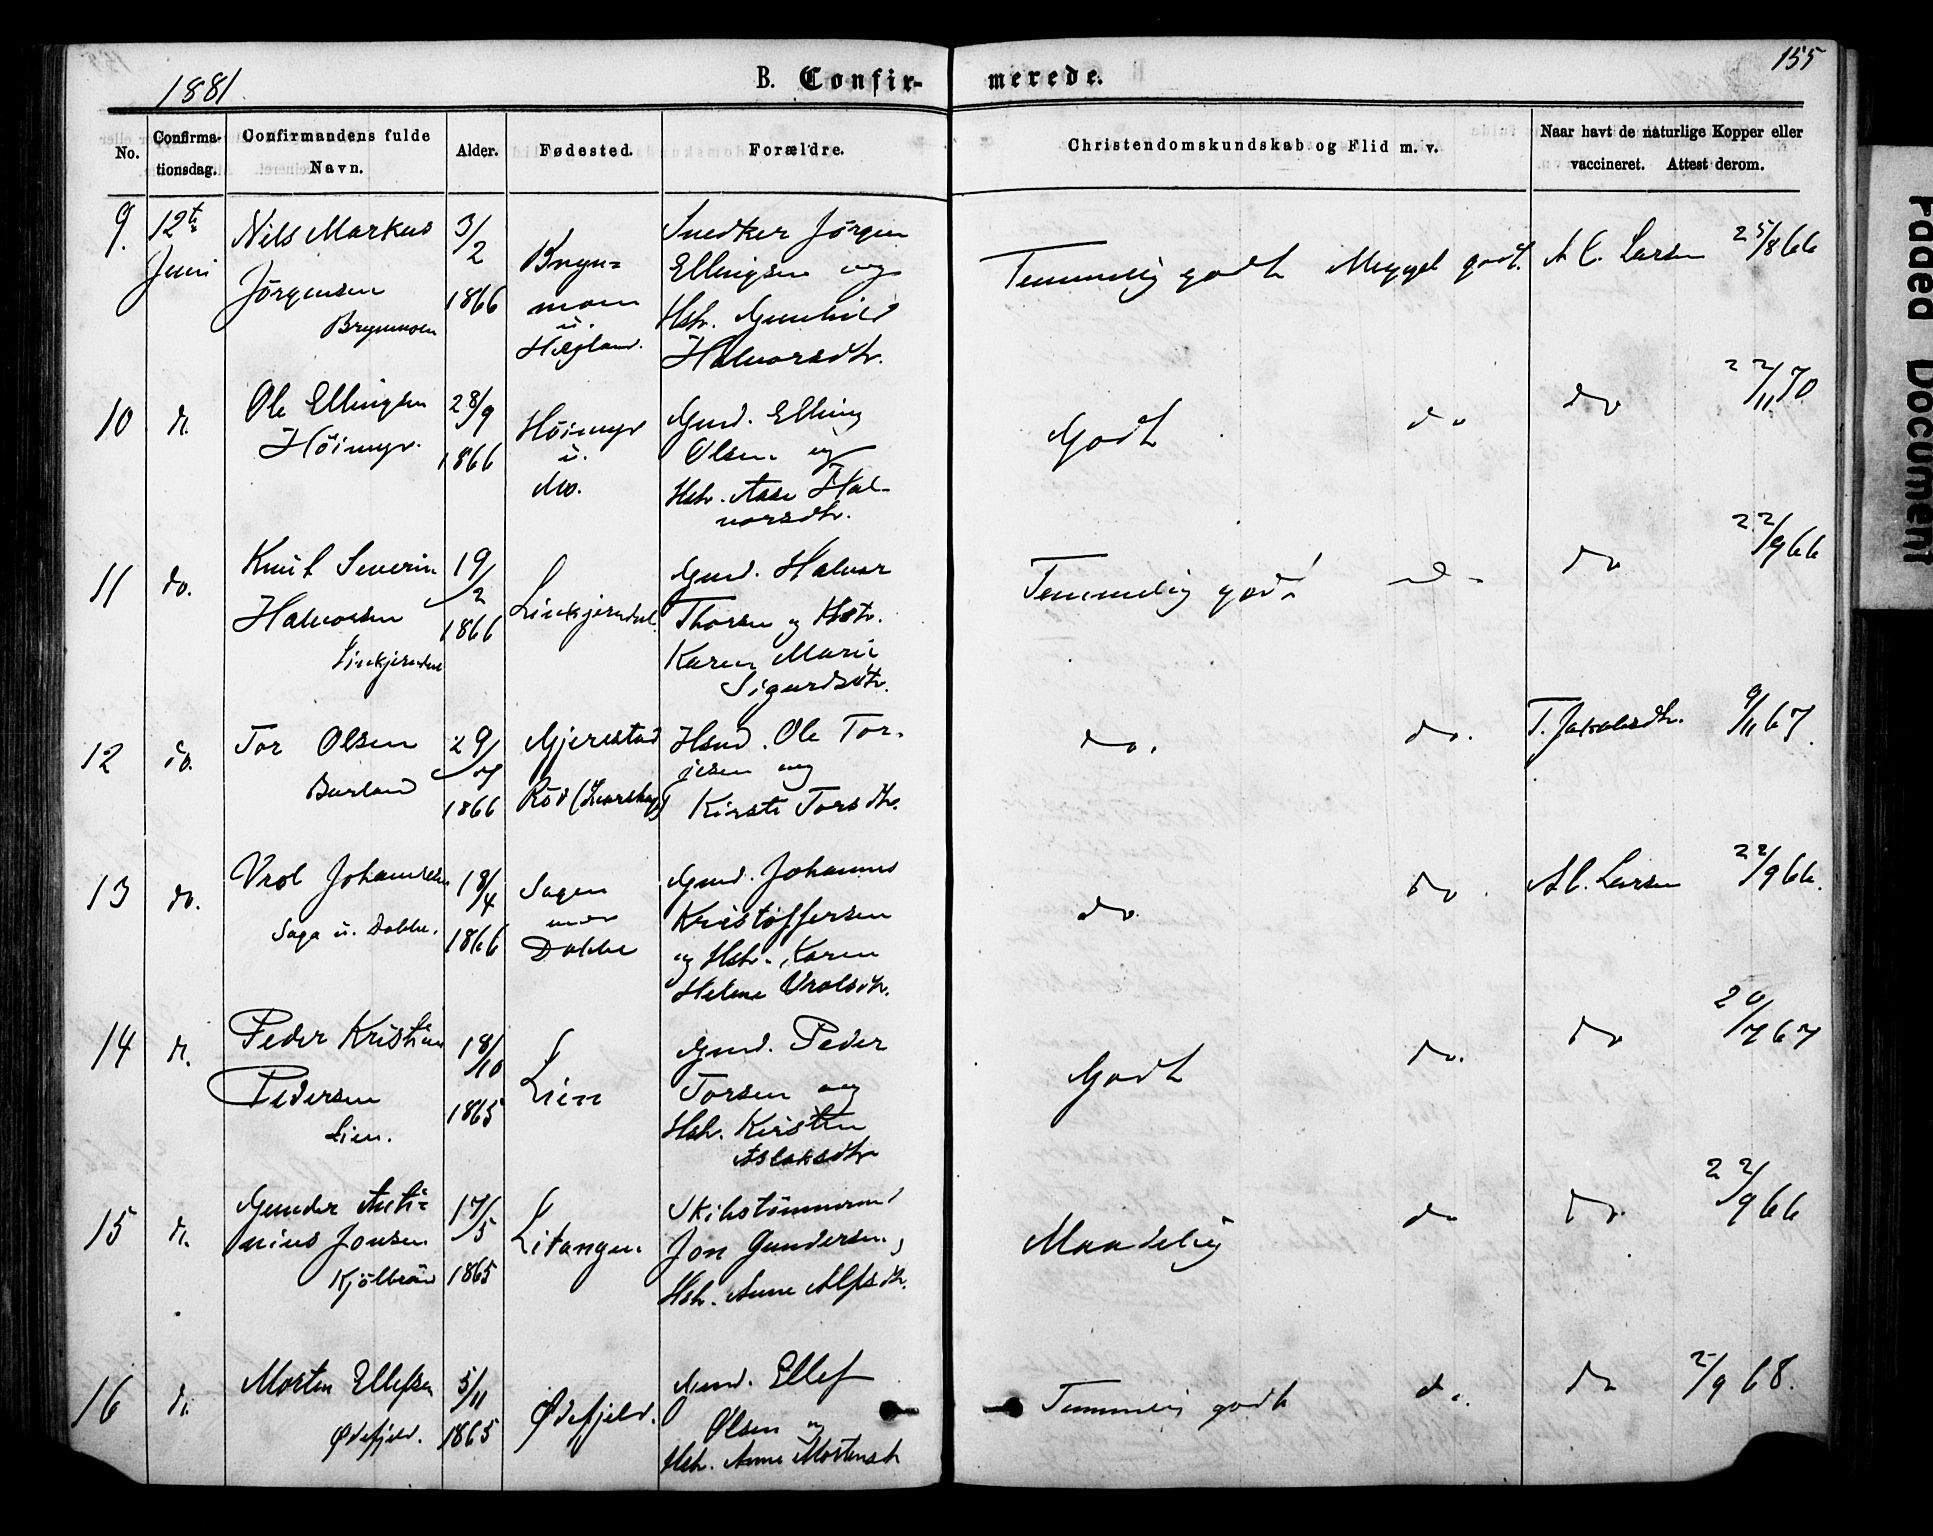 1881.
B. Confir-
merede.
155
No.
Confirma-
tionsdag.
Confirmandens fulde
Navn.
Alder.
Fødested.
Forældre.
Christendomskundskab og Flid m. v.
Naar havt de naturlige Kopper eller
vaccineret. Attest derom.
9.
12te
Juni
Nils Markus
Jörgensen
Brynmoen
3/2
1866
Bryn-
moen
u.
Snedker Jörgen
Ellingsen og
Hstr. Gunhild
Halvorsdtr.
Temmelig godt Meget godt.
A C. Larsen 25/8 66
10
d.
Ole Ellingsen
Höimyr.
28/9
1866
Höimyr
u.
Mo.
Gmd. Elling
Olsen og
Hstr. Aase Hal-
vorsdtr.
Godt
do
do
22/11 70
11
do.
Knut Severin
Halvorsen
Linkjerndal
19/2
1866
Linkjerndal.
Gmd. Halvor
Thorsen og Hstr.
Karen Marie
Sigurdsdtr.
Temmelig godt
d-
do
22/9 66
12
do.
Tor Olsen
29/7
1866
Gjerestad
Röd
Hsmd. Ole Tor-
jesen og
Kirsti Torsdtr.
do.
do.
T. Jakobsdtr. 9/11 67.
13
do.
Vrol Johannesen
Saga u. Dobbe.
18/4
1866
Sagen
under
Dobbe
Gmd. Johannes
Kristoffersen
og Hstr. Karen
Helene Vrolsdtr.
do.
do.
A C. Larsen 22/9 66.
14
d.
Peder Kristian
Pedersen
Lien.
18/10
1865
Lien
Gmd. Peder
Torsen og
Hstr. Kirsten
Aslaksdtr
Godt
do.
do
20/7 67
15
d.
Gunder Anti-
nius Jonsen
Kjölbrön
17/5
1865
Litangen.
Skibstömmermd
Jon Gundersen,
Hstr. Anne Alfsdtr.
Maadelig
do
do.
22/9 66
16
d.
Morten Ellefsen
Ødefjeld.
5/11
1865
Ødefjeld.
Gmd. Ellef
Olsen og
Hstr. Anne Mortensdtr
Temmelig godt
do.
do
2/9 68.
Faded Document